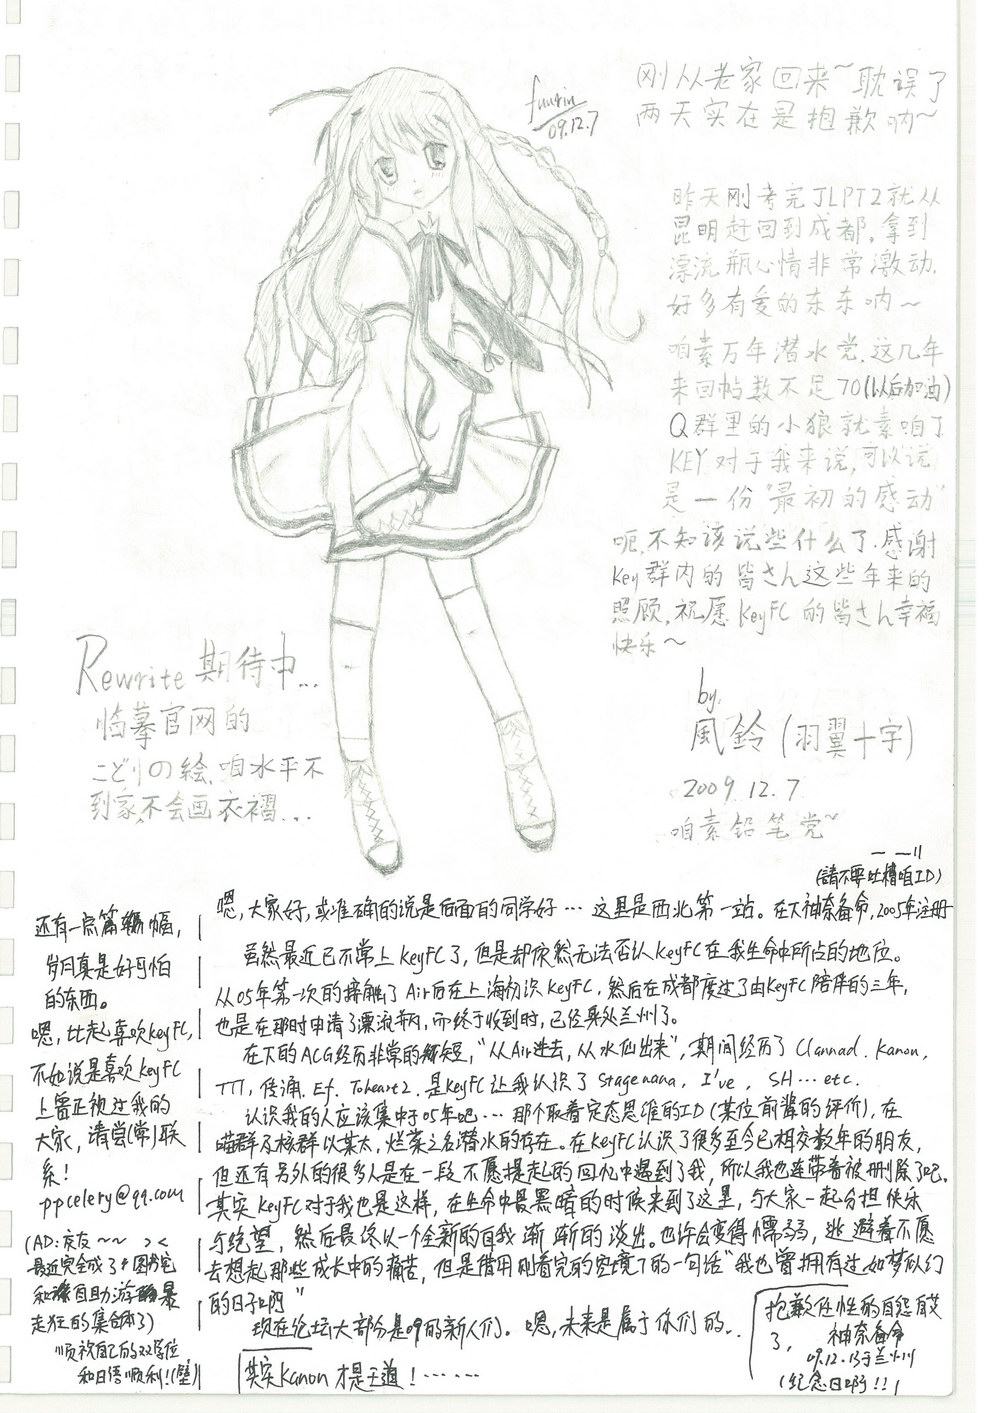 09.12.7
刚从老家回来~耽误了
两天实在是抱歉呐~
昨天刚考完JLPT2就从
昆明赶回到成都,拿到
漂流瓶心情非常激动.
好多有爱的东东呐~
咱素万年潜水党.这几年
来回帖数不足70(以后加油)
Q群里的小狼就素咱了
KEY对于我来说,可以说
是一份"最初的感动"
呃,不知该说些什么了.感谢
Key群内的皆さん这些年来的
照顾,祝愿KeyFC的皆さん幸福
快乐~
by.
風鈴(羽翼十字)
2009.12.7
咱素铅笔党~
(請不要吐槽咱ID)
Rewrite期待中...
临摹官网的
ことりの絵,咱水平不
到家,不会画衣褶...
嗯,大家好,或准确的说是后面的同学好…这里是西北第一站。在下神奈备命,2005年注册
虽然最近已不常上KeyFC了,但是却依然无法否认KeyFC在我生命中所占的地位。
从05年第一次的接触了Air后在上海初识KeyFC,然后在成都度过了由KeyFC陪伴的三年,
也是在那时申请了漂流瓶,而终于收到时,已经来处兰州了。
在下的ACG经历非常的短,"从Air进去,从水仙出来",期间经历了Clannad. Kanon,
TTT, 传诵. Ef. Toheart2. 是KeyFC让我认识了Stage nana, I've, SH…etc.
认识我的人应该集中于05年吧…那个取着定态思维的ID(某位前辈的评价),在
喵群及核群以某太,烂菜之名潜水的存在。在KeyFC认识了很多至今已相交数年的朋友,
但还有另外的很多人是在一段不愿提起的回忆中遇到了我,所以我也连带着被删除了吧.
其实KeyFC对于我也是这样,在生命中最黑暗的时候来到了这里,与大家一起分担快乐
与绝望,然后最终以一个全新的自我渐渐的淡出。也许会变得懦弱,逃避着不愿
去想起那些成长中的痛苦,但是借用刚看完的空境7的一句话"我也曾拥有过如梦似幻
的日子啊"
现在论坛大部分是09的新人们。嗯,未来是属于你们的..
其实Kanon才是王道!……
抱歉任性的自怨自艾
了,
神奈备命
09.12.13于兰州
(纪念日啊!!)
还有一点篇幅,
岁月真是好可怕
的东西。
嗯,比起喜欢KeyFC,
不如说是喜欢KeyFC
上曾正视过我的
大家,请尝(常)联
系!
ppcelery@qq.com
(AD:京友~~ ><
最近完全成了
和自助游最
走狂的集合体了)
顺祝自己的双学位
和日语顺利!(壁)